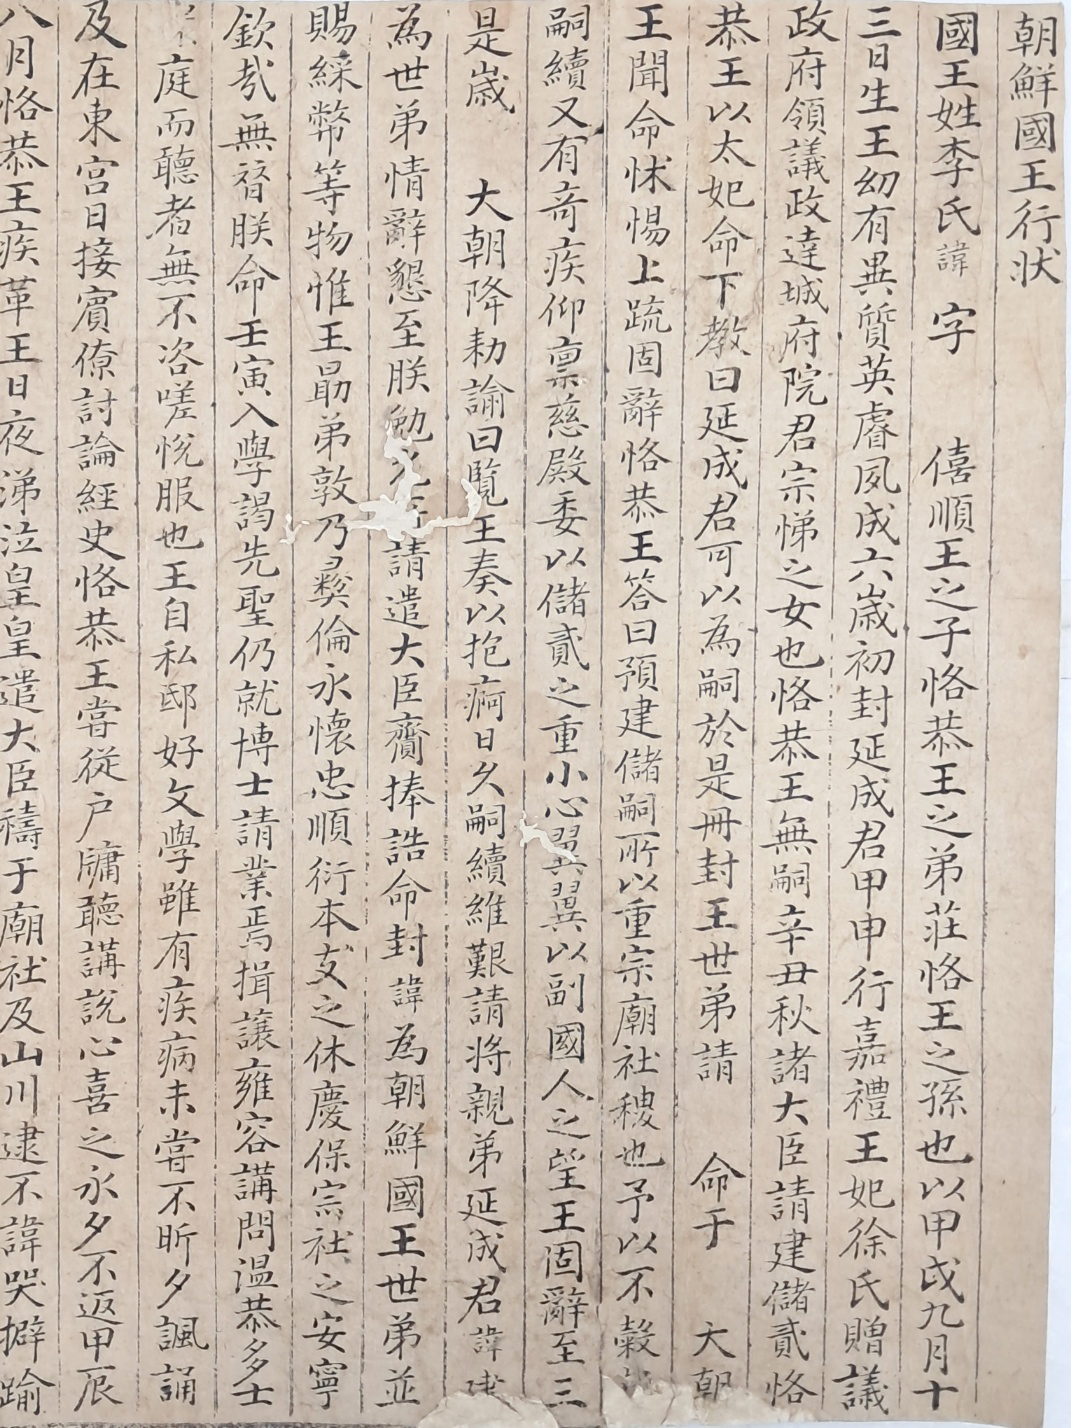 朝鮮國王行狀
國王姓李氏諱 字 僖順王之子恪恭王之弟莊恪王之孫也以甲戌九月十
三日生王幼有異質英睿夙成六歲初封延成君甲申行嘉禮王妃徐氏贈議
政府領議政達城府院君宗悌之女也恪恭王無嗣辛丑秋諸大臣請建儲貳恪
恭王以太妃命下教曰延成君可以為嗣於是冊封王世弟請 命于 大朝
王聞命怵惕上疏固辭恪恭王答曰預建儲嗣所以重宗廟社稷也予以不穀
嗣續又有奇疾仰稟慈殿委以儲貳之重小心翼翼以副國人之望王固辭至三
是歲 大朝降勑諭曰覽王奏以抱痾日久嗣續維艱請將親弟延成君諱
為世弟情辭懇至朕勉 請遣大臣齎捧誥命封諱為朝鮮國王世弟並
賜綵幣等物惟王勗弟敦乃彝倫永懷忠順衍本支之休慶保宗社之安寧
欽哉無替朕命壬寅入學謁先聖仍就博士請業焉揖讓雍容講問溫恭多士
庭而聽者無不咨嗟悅服也王自私邸好文學雖有疾病未嘗不昕夕諷誦
及在東宮日接賓僚討論經史恪恭王嘗從户牖聽講說心喜之永夕不返甲辰
八月恪恭王疾革王日夜涕泣皇皇遣大臣禱于廟社及山川逮不諱哭擗踰